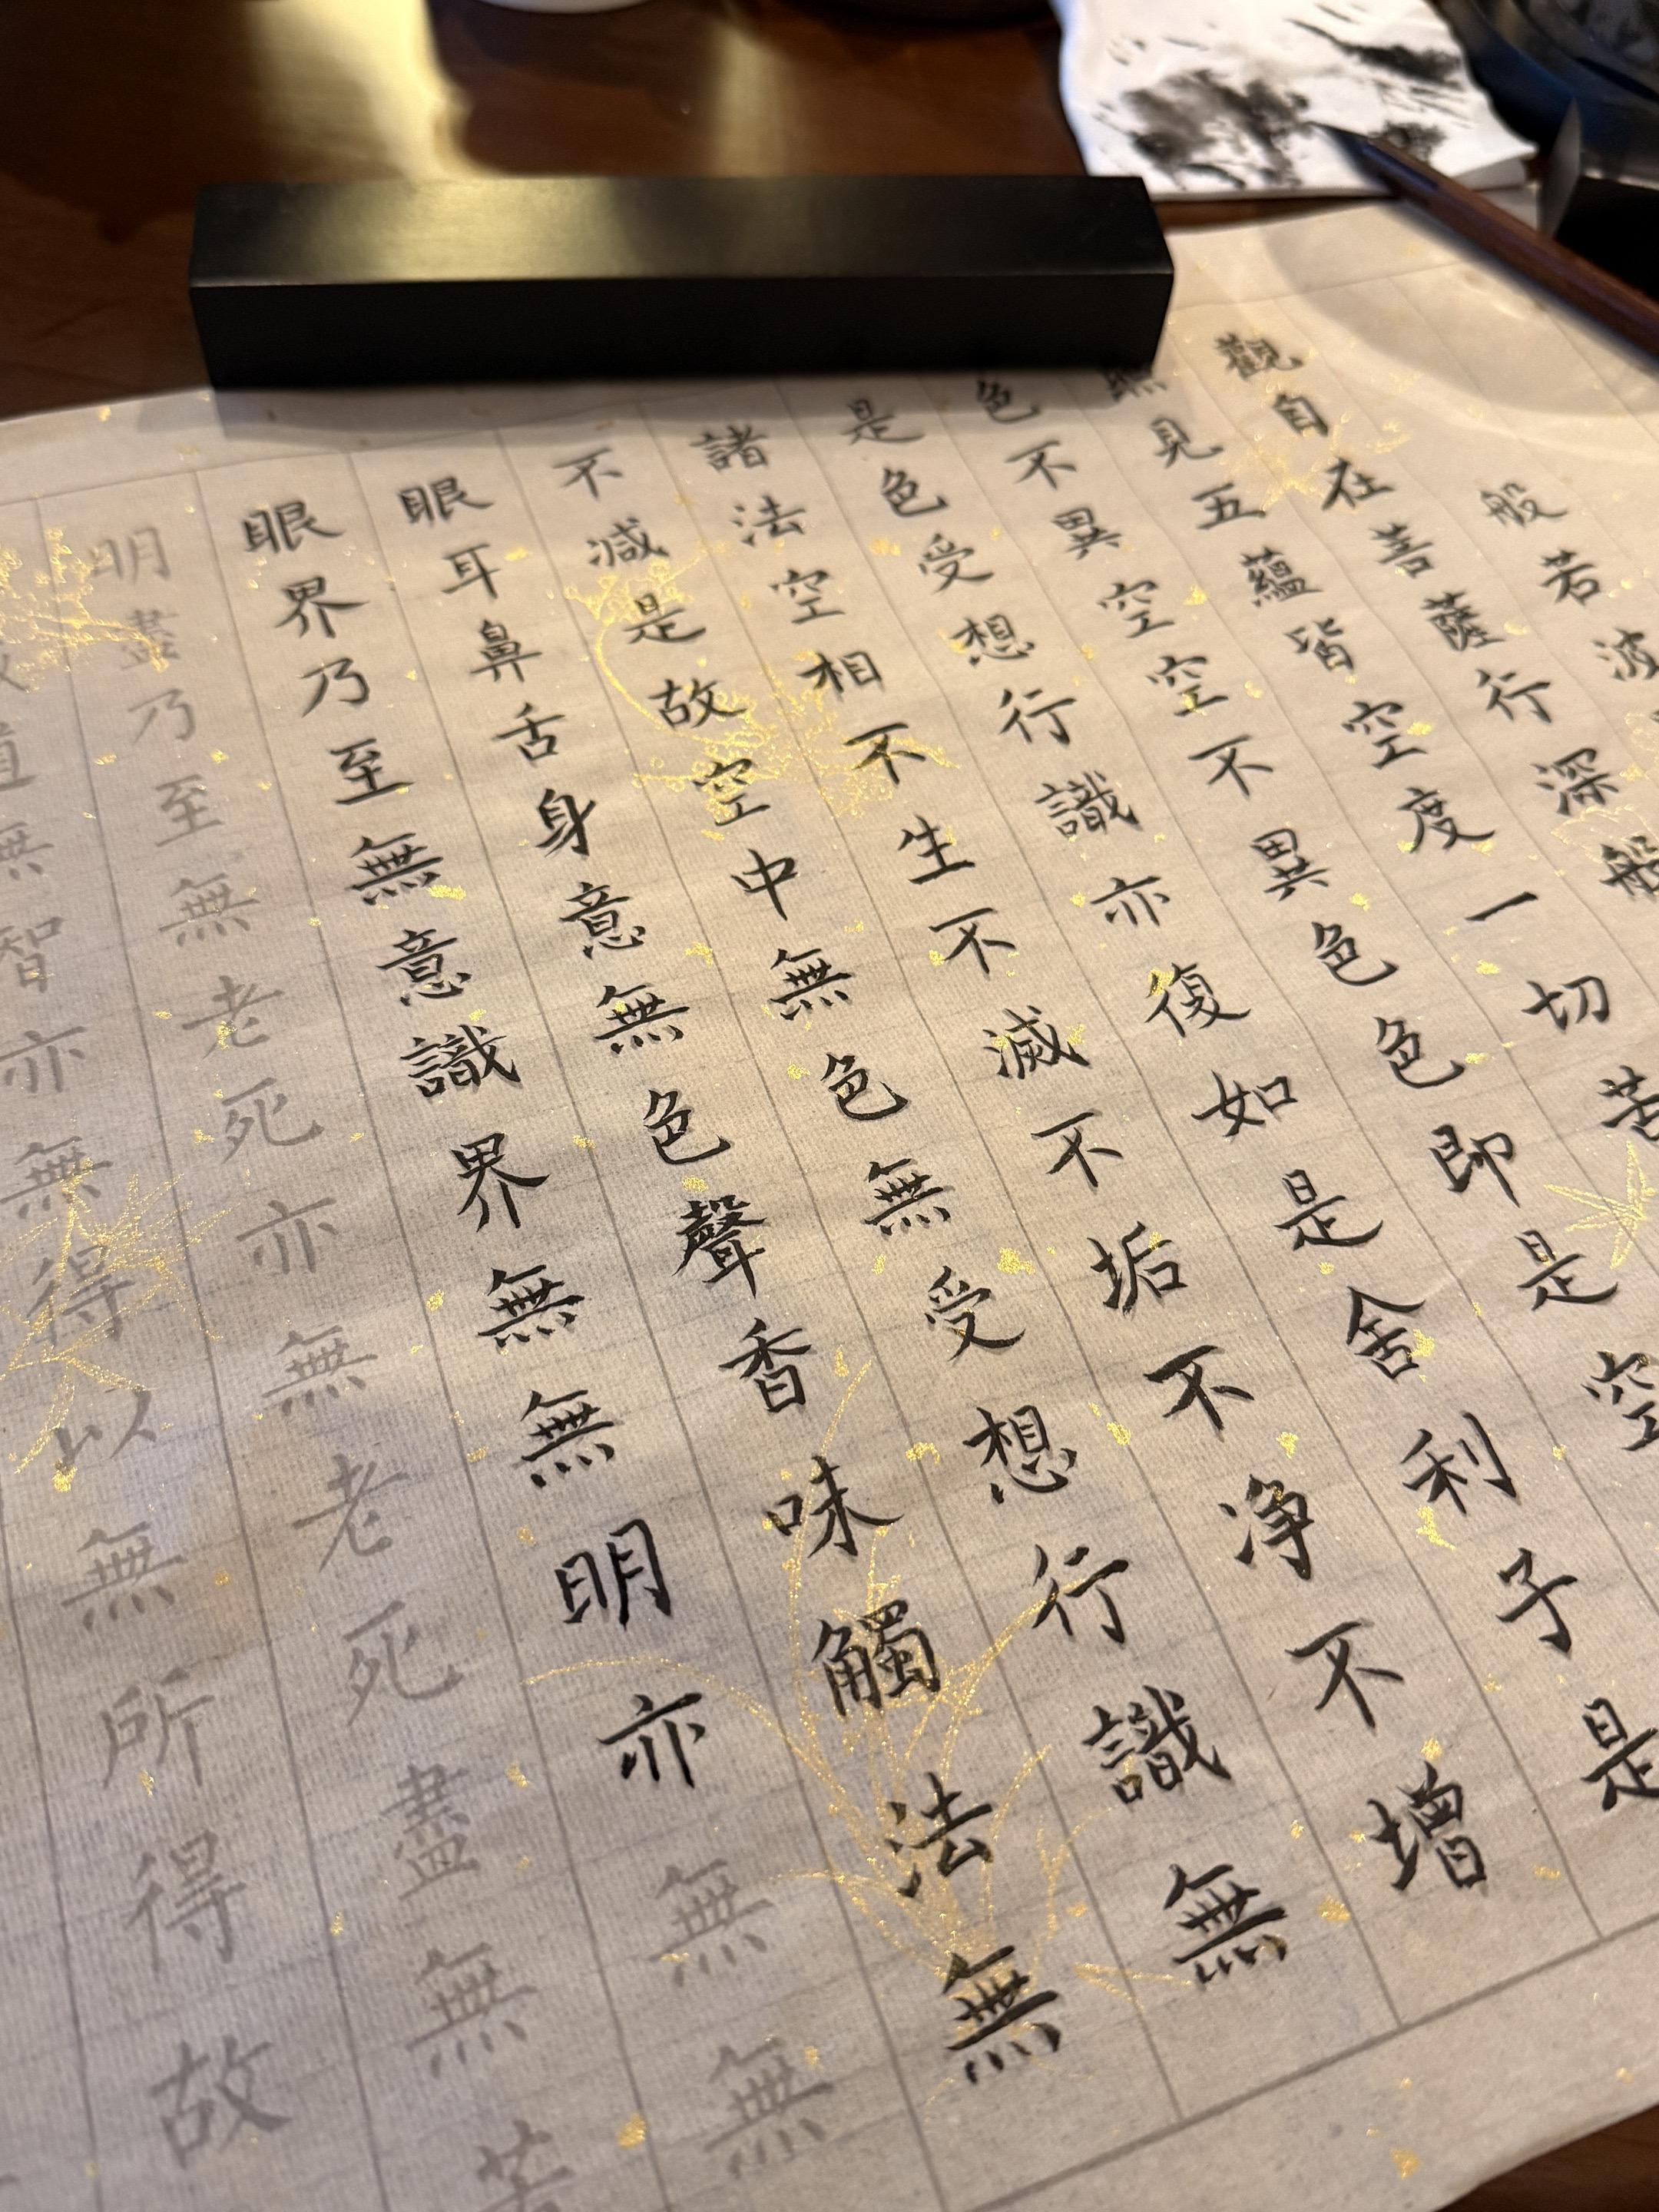 般若波
觀自在菩薩行深般
照見五蘊皆空度一切苦
色不異空空不異色色即是空
是色受想行識亦復如是舍利子是
諸法空相不生不滅不垢不净不增
不減是故空中無色無受想行識無
眼耳鼻舌身意無色聲香味觸法無
眼界乃至無意識界無無明亦無無
明盡乃至無老死亦無老死盡無苦
道無智亦無得以無所得故